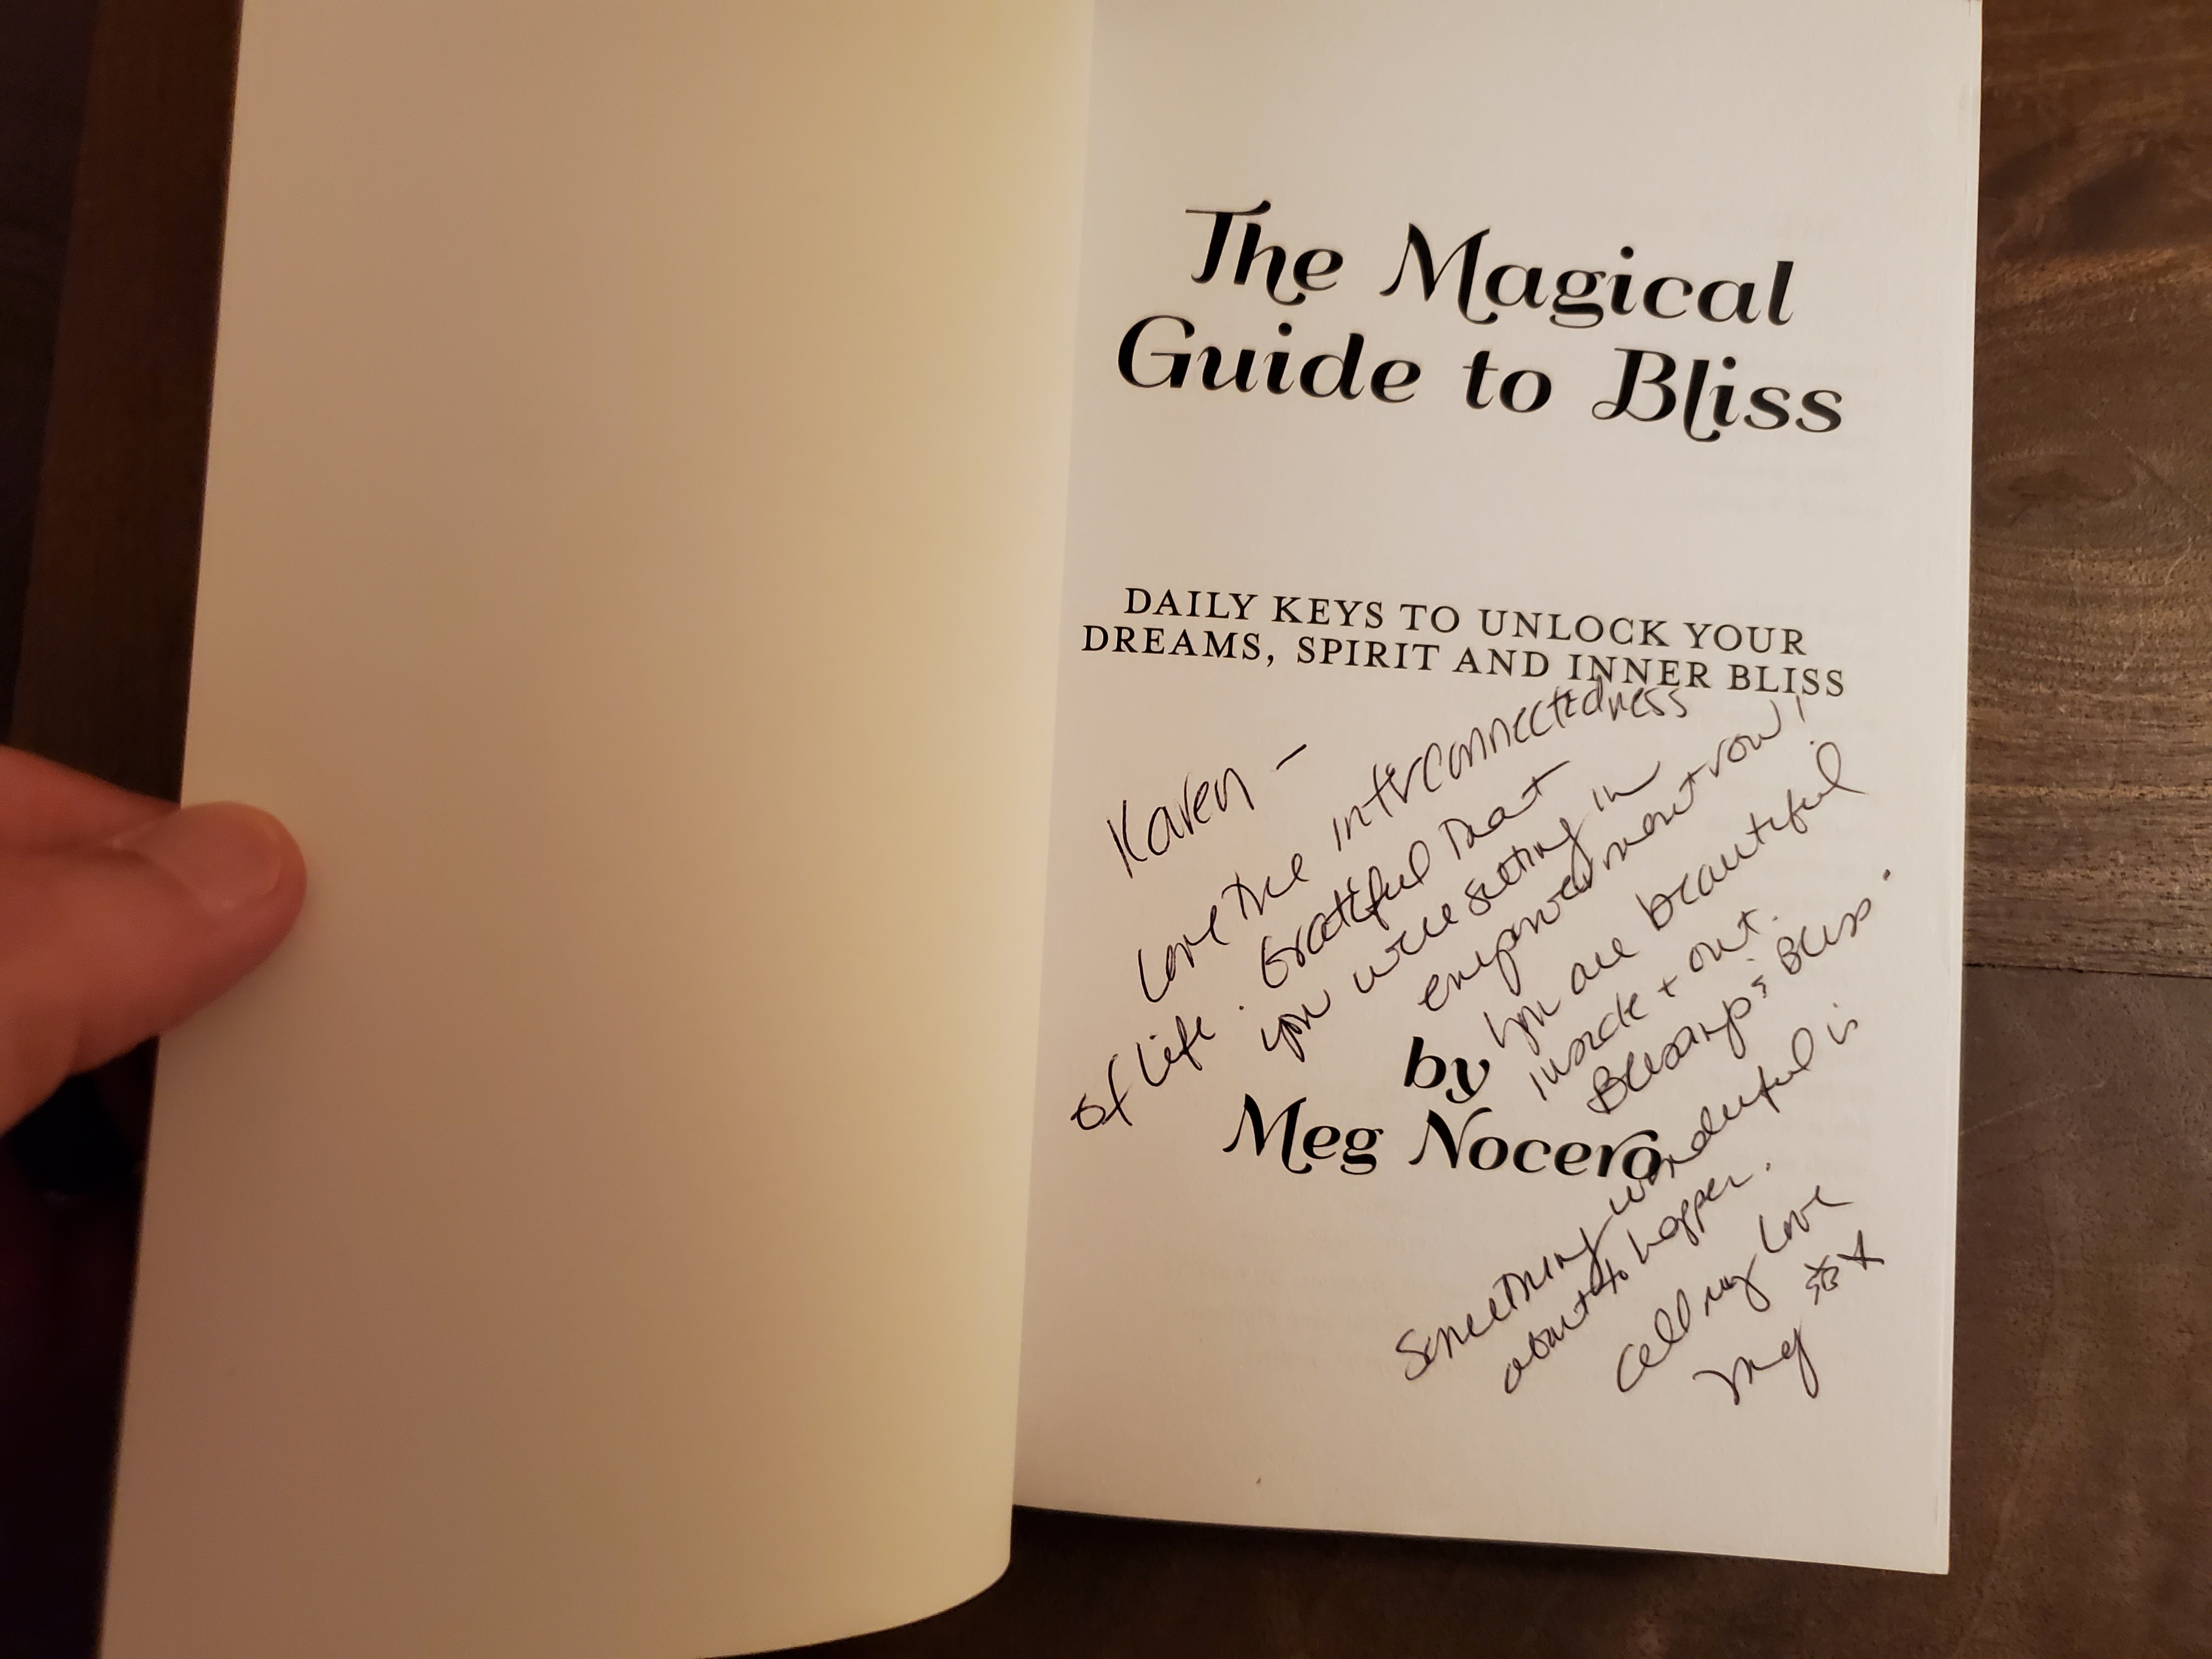 The Magical
Guide to Bliss
DAILY KEYS TO UNLOCK YOUR
DREAMS, SPIRIT AND INNER BLISS
Karen –
Love the interconnectedness
of Life. Grateful that
you were sitting in
empowerment row!
You are beautiful
inside + out.
Blessings & Bliss.
by
Meg Nocero
Something wonderful is
about to happen.
All my Love
Meg